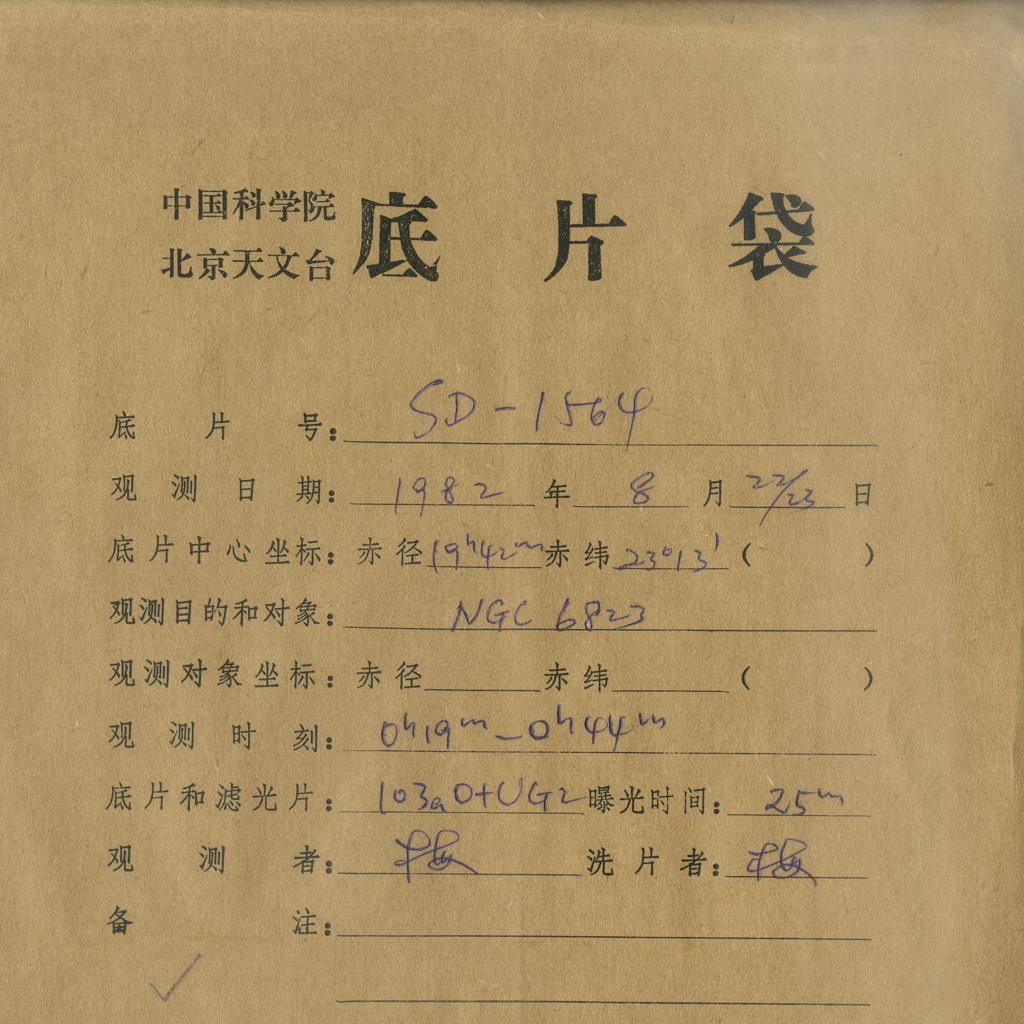 中国科学院
北京天文台 底片袋
底片号: SD-1564
观测日期: 1982 年 8 月 22/23 日
底片中心坐标: 赤径 19h42m 赤纬 23°13′ ( )
观测目的和对象: NGC 6823
观测对象坐标: 赤径 赤纬 ( )
观测时刻: 0h19m-0h44m
底片和滤光片: 103aO+UG2 曝光时间: 25m
观测者: 梅 洗片者: 梅
备注: